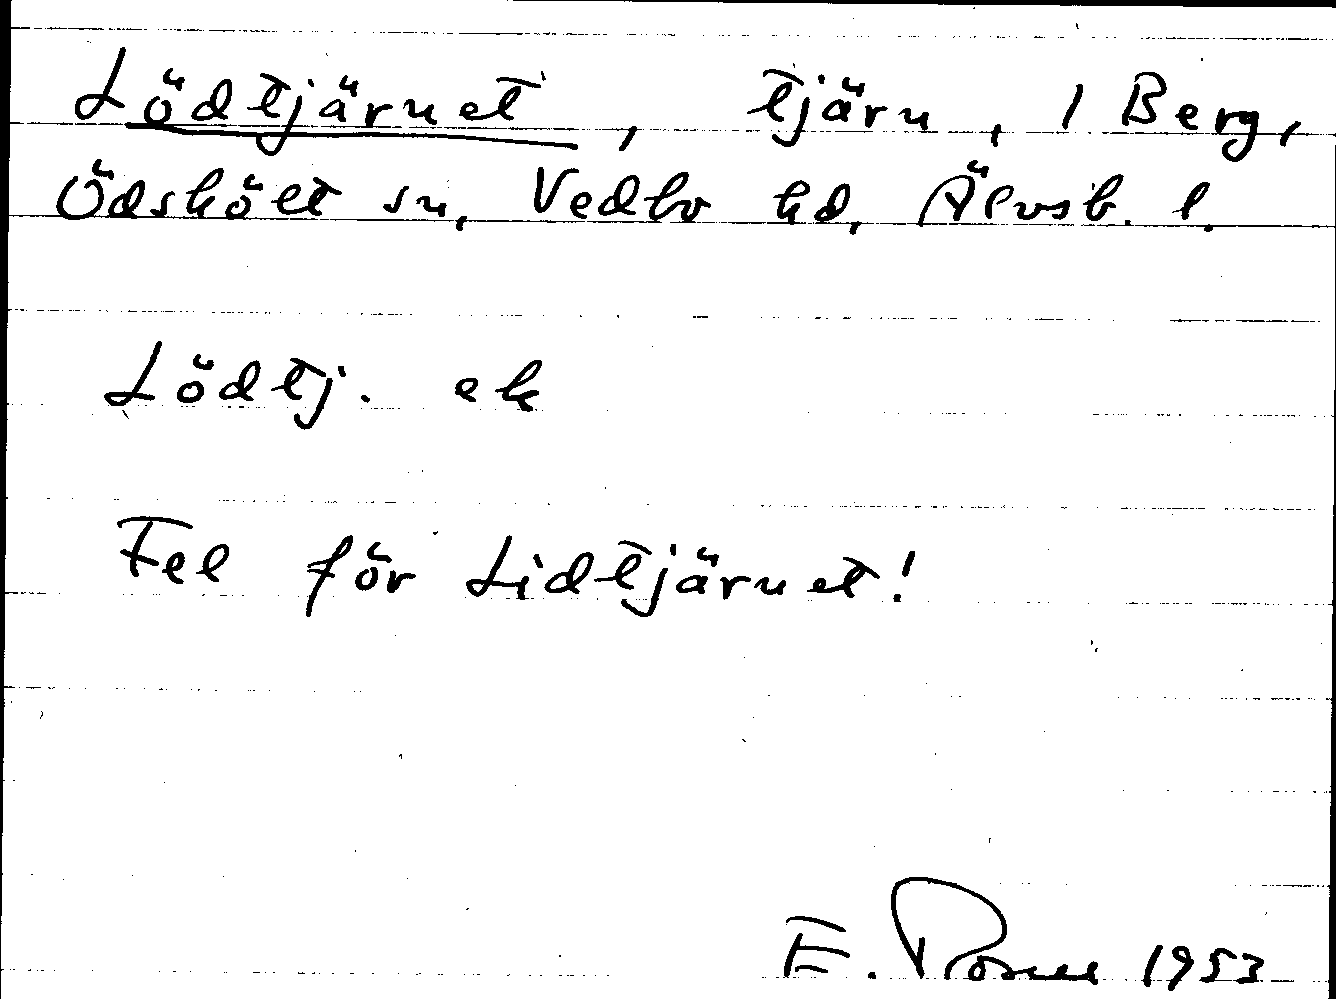 Lödtjärnet, tjärn, 1 Berg,
Ödskölt sn, Vedbo hd, Älvsb. l.
Lödtj. ek
Fel för Lidtjärnet!
E. 1953